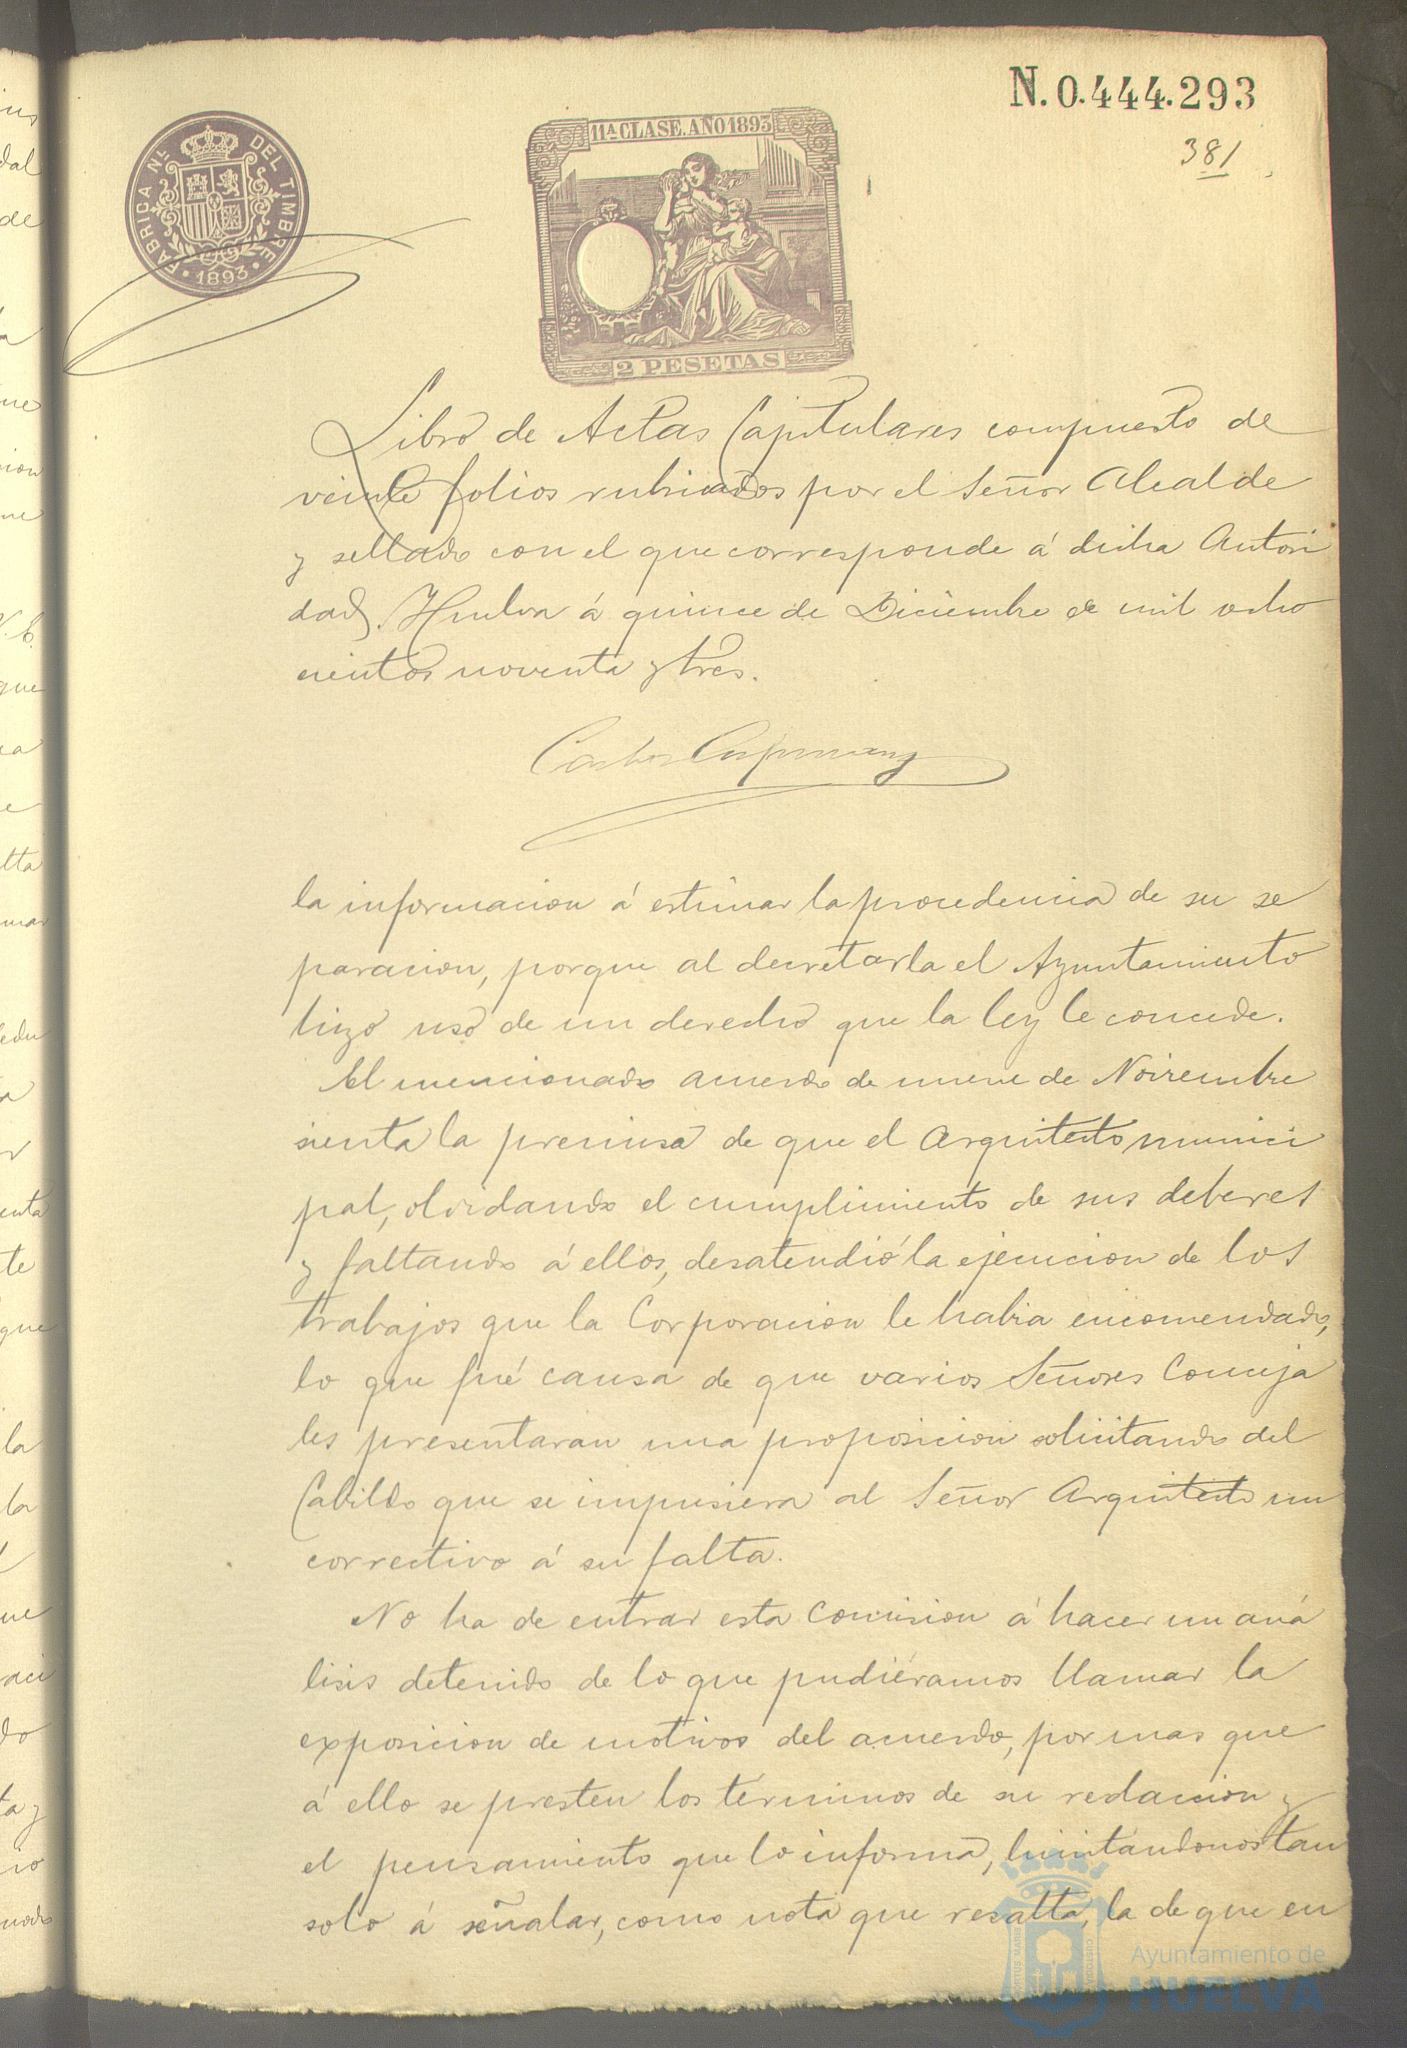 N. 0.444.293
381
FABRICA Nal DEL TIMBRE
1893
11ª CLASE. AÑO 1893
2 PESETAS
Libro de Actas Capitulares compuesto de
veinte folios rubricados por el Señor Alcalde
y sellado con el que corresponde á dicha Autori
dad. Huelva á quince de Diciembre de mil ocho
cientos noventa y tres.
la informacion á estimar la procedencia de su se
paracion, porque al decretarla el Ayuntamiento
hizo uso de un derecho que la ley le concede.
El mencionado acuerdo de nueve de Noviembre
sienta la premisa de que el Arquitecto munici
pal, olvidando el cumplimiento de sus deberes
y faltando á ellos, desatendió la ejecucion de los
trabajos que la Corporacion le habia encomendado,
lo que fué causa de que varios Señores Conceja
les presentaran una proposicion solicitando del
Cabildo que se impusiera al Señor Arquitecto un
correctivo á su falta.
No ha de entrar esta Comision á hacer un aná
lisis detenido de lo que pudiéramos llamar la
exposicion de motivos del acuerdo, por mas que
á ello se presten los términos de su redaccion y
el pensamiento que lo informa, limitandonos tan
solo á señalar, como nota que resalta, la de que en
Ayuntamiento de
HUELVA